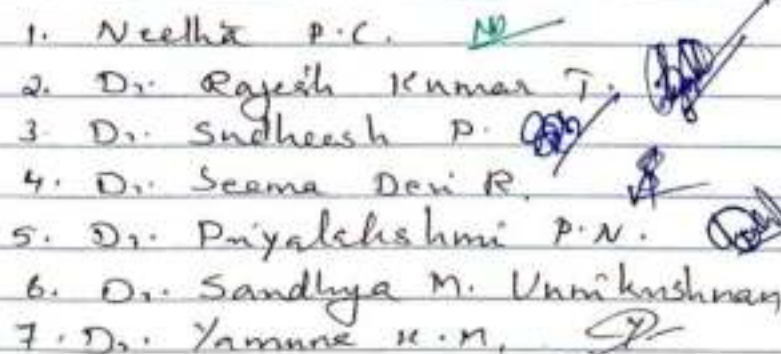 1. Neetha P.C.
2. Dr. Rajesh Kumar T.
3. Dr. Sudheesh P.
4. Dr. Seema Devi R.
5. Dr. Priyalakshmi P.N.
6. Dr. Sandhya M. Unnikrishnan
7. Dr. Yamuna K.M.